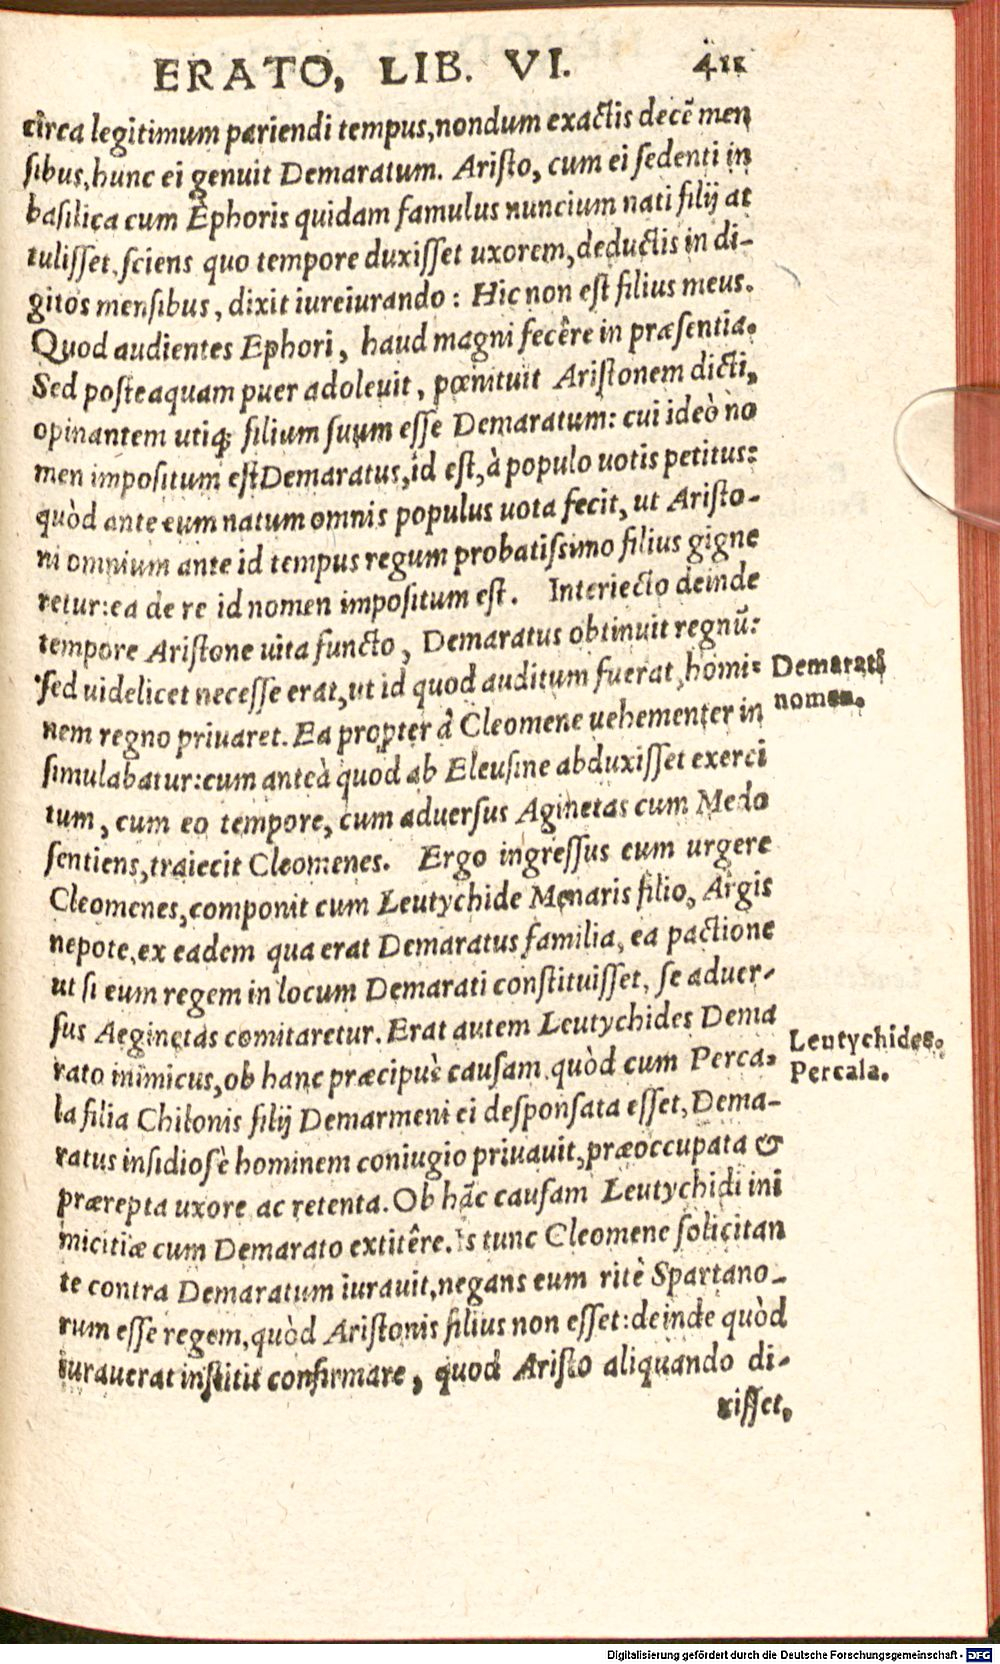 ERATO, LIB. VI. 411
circa legitimum pariendi tempus,nondum exactis decẽ men
sibus,hunc ei genuit Demaratum. Aristo, cum ei sedenti in
basilica cum Ephoris quidam famulus nuncium nati filij at
tulisset, sciens quo tempore duxisset uxorem,deductis in di-
gitos mensibus, dixit iureiurando: Hic non est filius meus.
Quod audientes Ephori, haud magni fecêre in præsentia.
Sed posteaquam puer adoleuit, pœnituit Aristonem dicti,
opinantem utiq; filium suum esse Demaratum: cui ideò no
men impositum est Demaratus,id est,à populo uotis petitus:
quòd ante eum natum omnis populus uota fecit, ut Aristo-
ni omnium ante id tempus regum probatissimo filius gigne
retur:ea de re id nomen impositum est. Interiecto deinde
tempore Aristone uita functo, Demaratus obtinuit regnũ:
sed uidelicet necesse erat,ut id quod auditum fuerat,homi-
Demarati
nomen.
nem regno priuaret. Ea propter à Cleomene uehementer in
simulabatur:cum anteà quod ab Eleusine abduxisset exerci
tum, cum eo tempore, cum aduersus Aginetas cum Medo
sentiens,traiecit Cleomenes. Ergo ingressus eum urgere
Cleomenes,componit cum Leutychide Menaris filio, Argis
nepote,ex eadem qua erat Demaratus familia, ea pactione
ut si eum regem in locum Demarati constituisset, se aduer-
sus Aeginetas comitaretur. Erat autem Leutychides Dema
Leutychides.
rato inimicus,ob hanc præcipuè causam quòd cum Perca-
Percala.
la filia Chilonis filij Demarmeni ei desponsata esset, Dema-
ratus insidiosè hominem coniugio priuauit,præoccupata &
prærepta uxore ac retenta. Ob hãc causam Leutychidi ini
micitiæ cum Demarato extitêre. Is tunc Cleomene solicitan
te contra Demaratum iurauit,negans eum ritè Spartano-
rum esse regem,quòd Aristonis filius non esset:deinde quòd
iurauerat institit confirmare, quod Aristo aliquando di-
xisset,
Digitalisierung gefördert durch die Deutsche Forschungsgemeinschaft - DFG